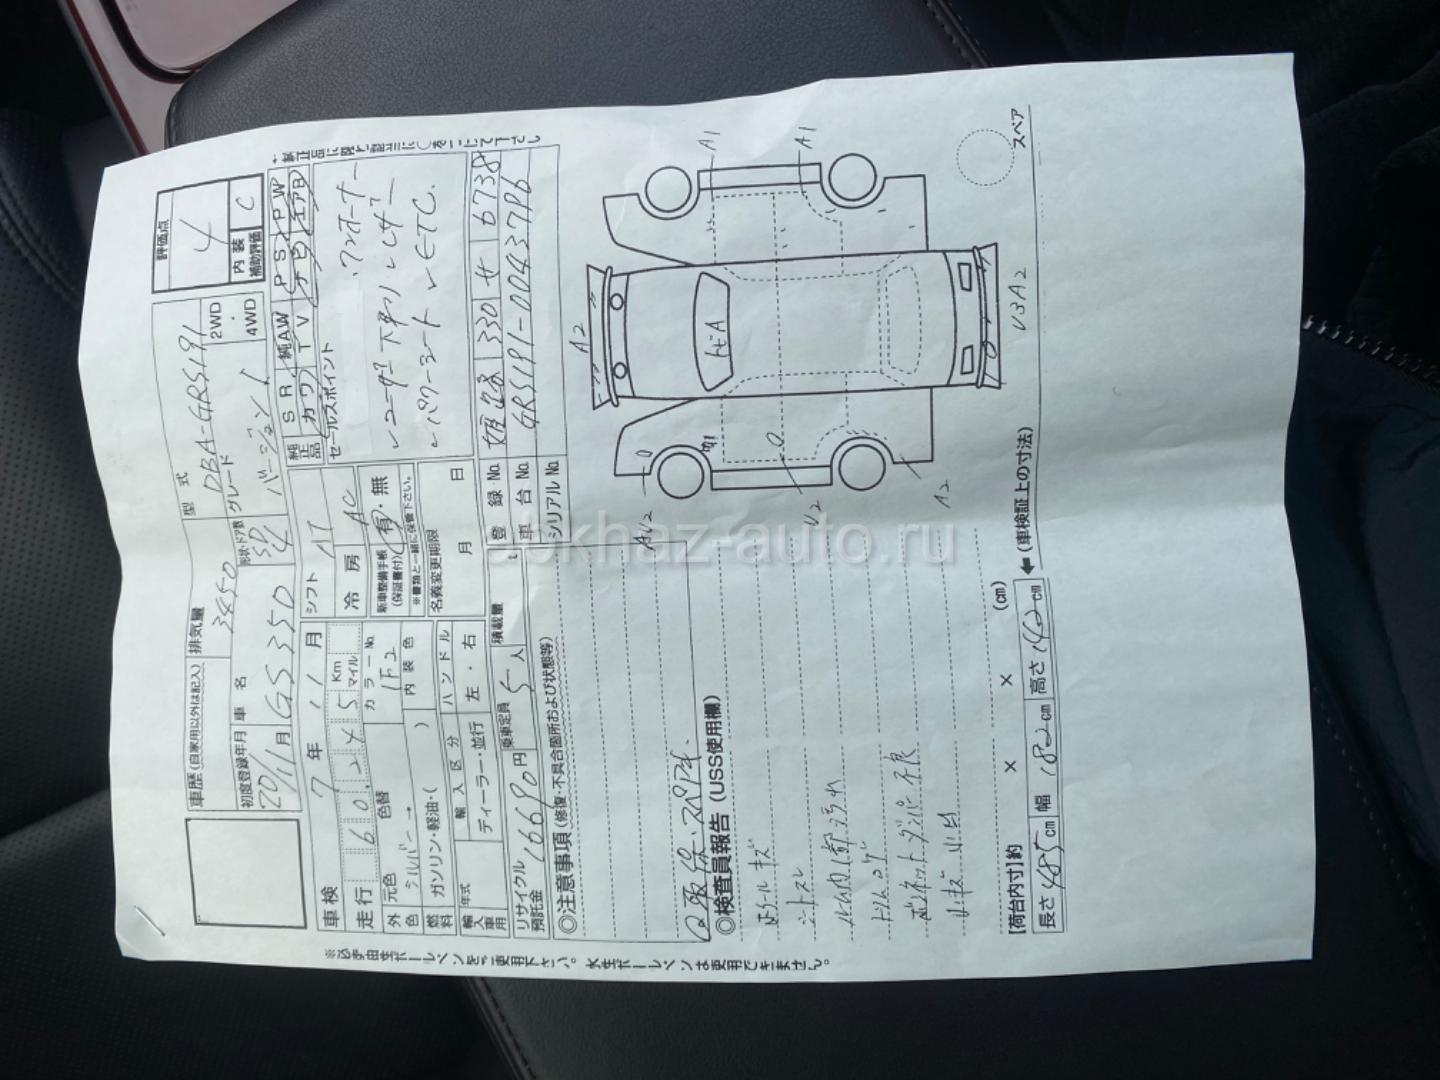 車歴(自家用以外は記入)
排気量
3450
型式
DBA-GRS191
評価点
4
内装
補助評価
C
初度登録年月
20/11月
車名
GS350
形状・ドア数
SD
4
グレード
バージョンI
2WD
・
4WD
車検
7年11月
シフト
AT
純正品
SR
純AW
PS
PW
カワ
TV
ナビ
エアB
走行
60.245
Km
マイル
冷房
AC
セールスポイント
ワンオーナー
外色
元色
シルバー→
色替
カラーNo.
1F2
新車整備手帳
(保証書付)
有・無
※書類と一緒に保管下さい。
レユーザー下取り
レレザー
レパワーシート
レETC.
燃料
ガソリン・軽油・( )
内装色
名義変更期限
月 日
輸入車用
年式
輸入区分
ディーラー・並行
ハンドル
左・右
登録No.
姫路 330 せ 6738
リサイクル
預託金
16690円
乗車定員
5人
積載量
t
車台No.
GRS191-0043796
シリアルNo.
◎注意事項(修復・不具合箇所および状態等)
◎検査員報告(USS使用欄)
Wホイールキズ
シートスレ
ボンネットダンパー不良
A2
A1
A1
トビA
AU2
U2
A2
U3A2
スペア
【荷台内寸】約 × × (cm)
長さ 485 cm 幅 182 cm 高さ 142 cm
(車検証上の寸法)
※必ず油性ボールペンをご使用下さい。水性ボールペンは使用できません。
abkhaz-auto.ru